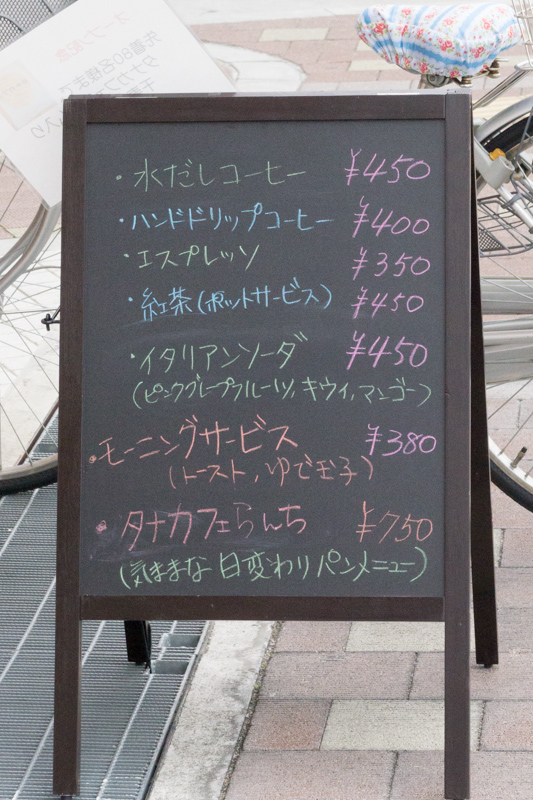 ・水だしコーヒー ¥450
・ハンドドリップコーヒー ¥400
・エスプレッソ ¥350
・紅茶(ポットサービス) ¥450
・イタリアンソーダ ¥450
(ピンクグレープフルーツ, キウイ, マンゴー)
・モーニングサービス ¥380
(トースト, ゆで玉子)
・タナカフェらんち ¥750
(気ままな日変わりパンメニュー)